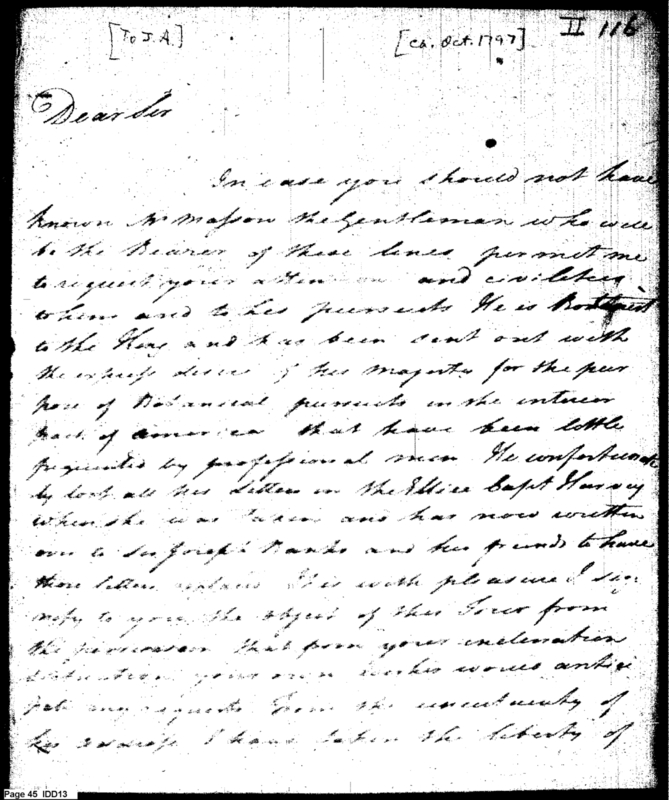 [To J.A.] [ca. Oct. 1797] II 116
Dear Sir
In case you should not have
known Mr Masson the Gentleman who will
be the Bearer of these lines permit me
to request your attention and civilities
to him and to his pursuits He is Botanist
to the King and has been sent out with
the express desire of his Majesty for the pur
pose of Botanical pursuits in the interior
part of America that have been little
frequented by professional men He unfortunate
ly lost all his letters in the Ellice Capt Harvey
when she was taken and has now written
over to Sir Joseph Banks and his friends to have
those letters replaced It is with pleasure I sig
nify to you the object of this Tour from
the persuasion that from your inclination
your own wishes would antici
pate my requests From the uncertainty of
his address I have taken the liberty of
Page 45 IDD13